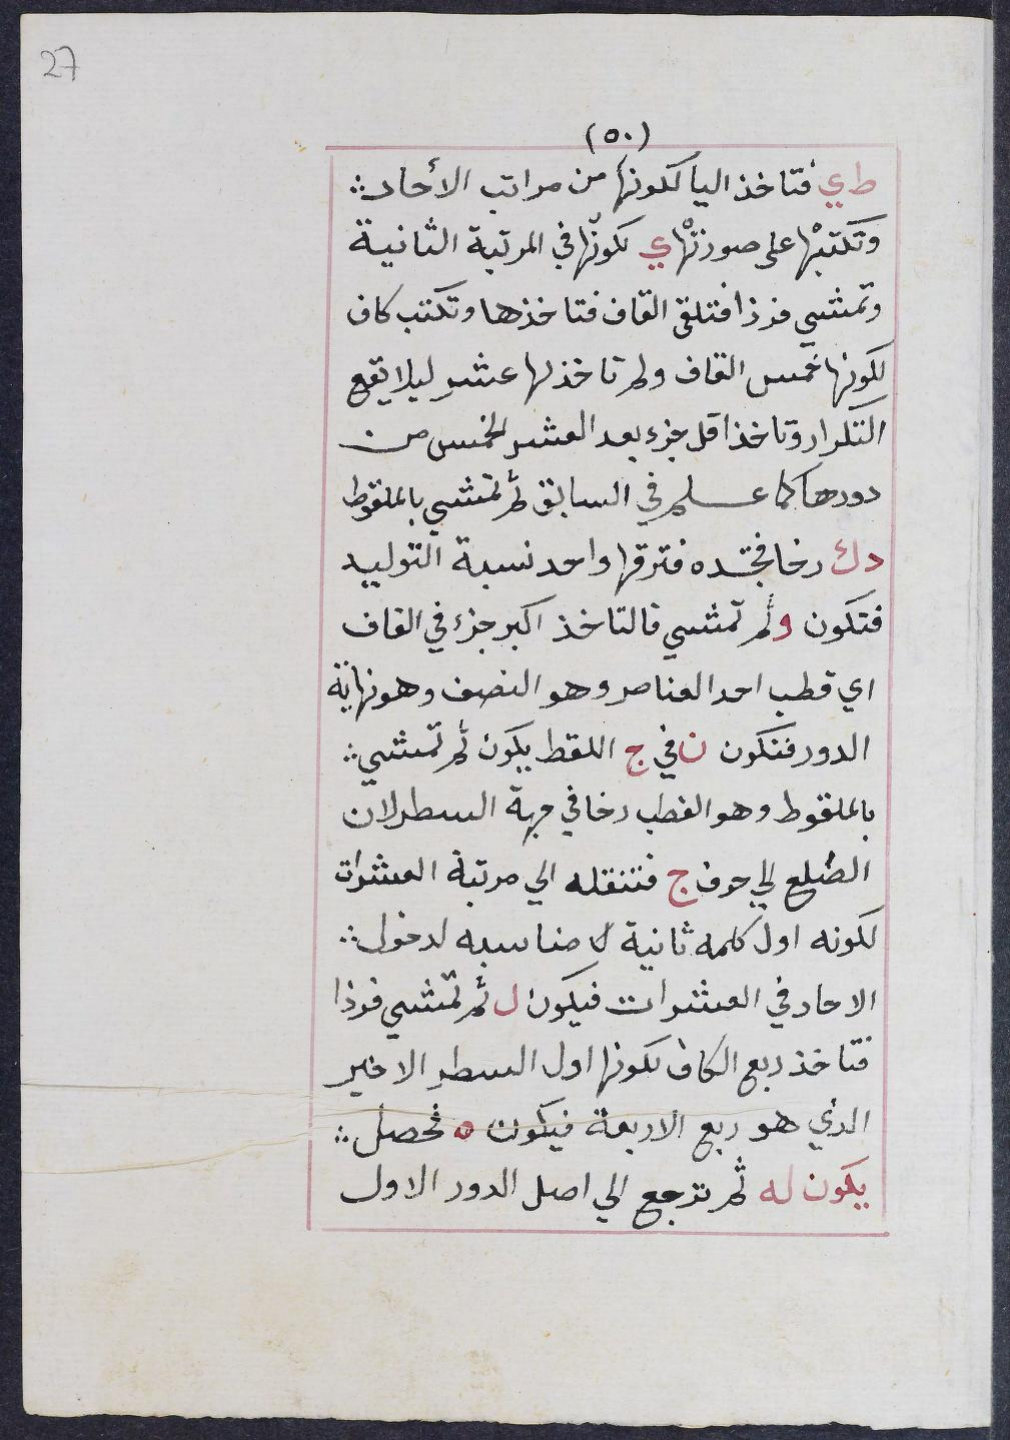 27
(٥٠)
ط ي فتاخذ اليا لكونها من مراتب الأحاد ؞
وتكتبها على صورتها ي لكونها في المرتبة الثانية
وتمشي فرذا فتلقى القاف فتاخذها وتكتب كاف
لكونها خمس القاف ولم تاخذ لها عشر ليلا يقع
التكرار وتاخذ اقل جزء بعد العشر الخمس من
دورها كما علم في السابق ثم تمشي بالملقوط
د ك رخا فتجده فترقها واحد نسبة التوليد
فتكون و ثم تمشي قا لتاخذ اكبر جزء في القاف
اي قطب احد العناصر وهو النصف وهو نهاية
الدور فتكون ن في ج اللقط يكون ثم تمشي ؞
بالملقوط وهو القطب رخا في جهة السطر لان
الضلع الي حرف ج فتنقله الي مرتبة العشرات
لكونه اول كلمه ثانية لا مناسبه لدخول ؞
الاحاد في العشرات فيكون ل ثم تمشي فرذا
فتاخذ ربع الكاف لكونها اول السطر الاخير
الذي هو ربع الاربعة فيكون ه فحصل ؞
يكون له ثم ترجع الي اصل الدور الاول